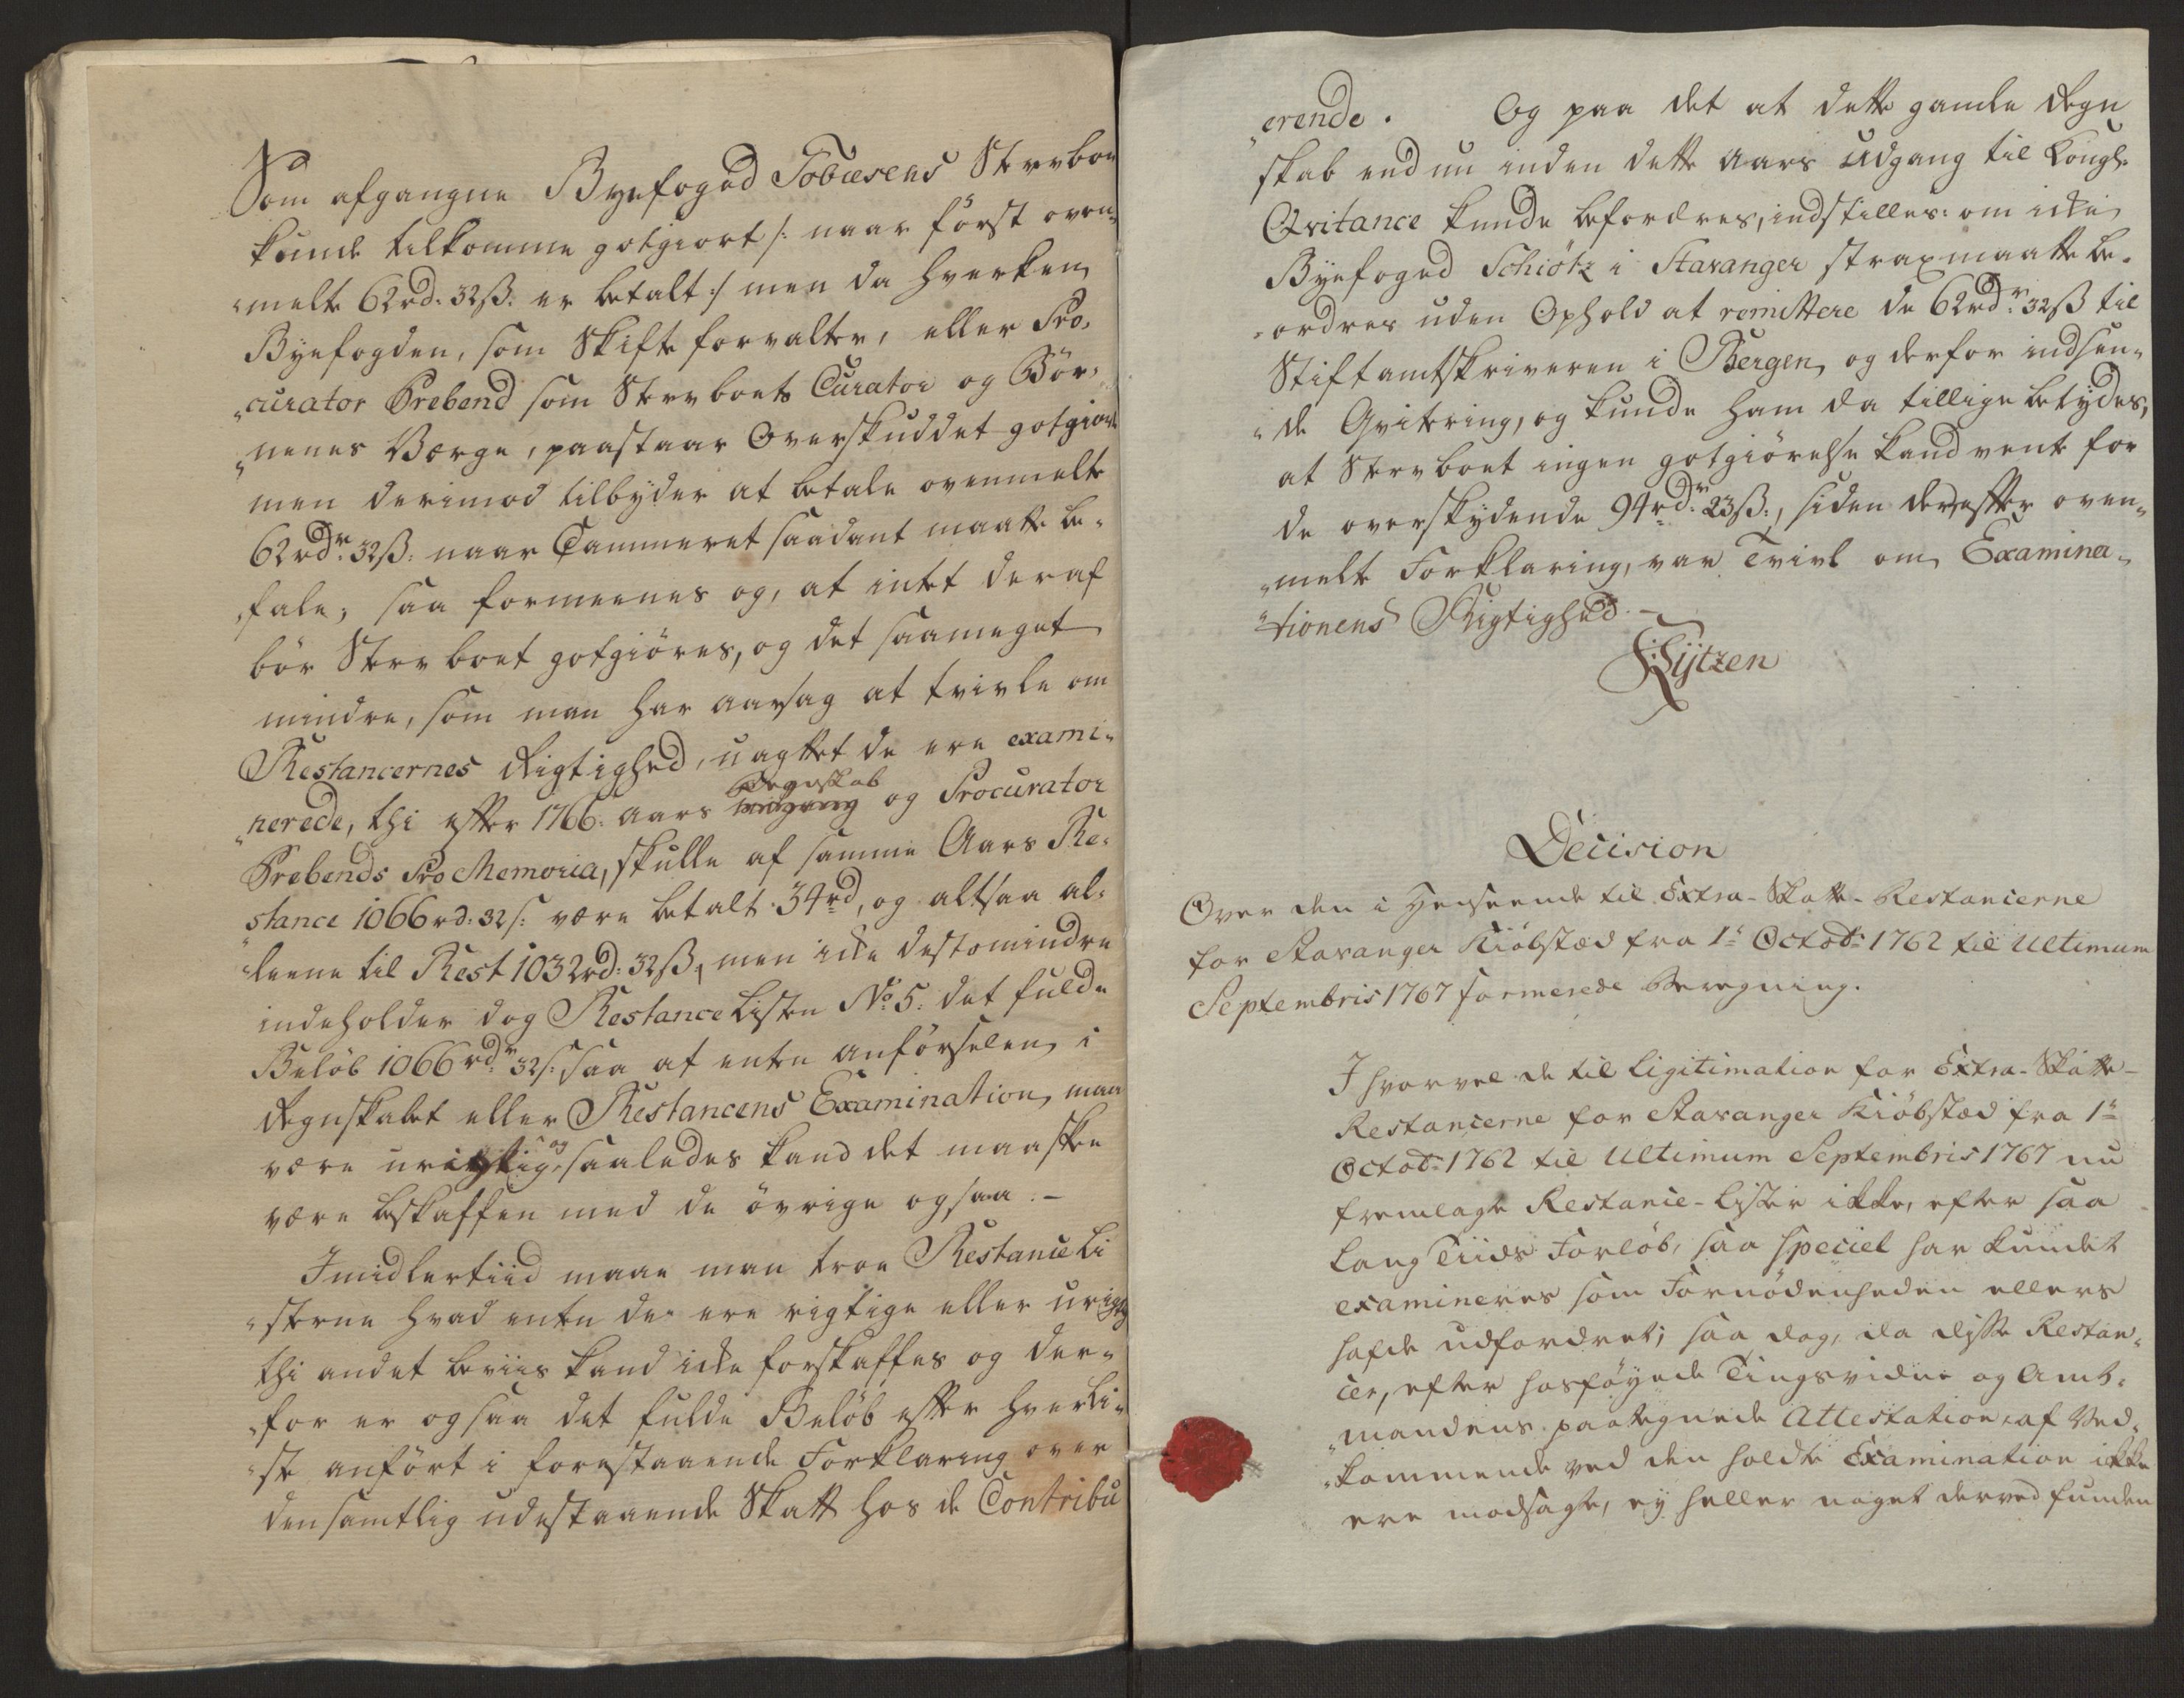 Som afgangne Byefoged Tobiesens Stervboe
kunde tilkomme gotgiort /: naar først oven-
melte 62 rd: 32 ß: er betalt :/ men da hverken
Byefogden, som Skifteforvalter, eller Pro-
curator Prebend som Stervboets Curator og Bør-
nenes Værge, paastaar Overskuddet gotgiort
men derimod tilbyder at betale ovenmelte
62 rdr: 32 ß: naar Cammeret saadant maatte be-
fale; saa formeenes og, at intet deraf
bør Stervboet gotgiøres, og det saameget
mindre, som man har aarsag at tvivle om
Restancernes Rigtighed, uagtet de ere exami-
nerede, thi efter 1766: aars Regnskab og Procurator
Prebends Pro Memoria, skulle af samme Aars Re-
stance 1066 rd: 32 ß: være betalt 34 rd, og altsaa al-
leene til Rest 1032 rd: 32 ß, men icke destomindre
indeholder dog Restance Listen No: 5: det fulde
Beløb 1066 rdr: 32 ß: saa at enten anførselen i
Regnskabet eller Restancens Examination, maa
være urigtig, og saaledes kand det maaskee
være beskaffen med de øvrige ogsaa. -
Imidlertiid maae man troe Restance Li-
sterne hvad enten de ere rigtige eller urigtig
thi andet beviis kand icke forskaffes og der-
for er ogsaa det fulde Beløb efter hver Li-
ste anført i forestaaende Forklaring over
den samtlig udestaaende Skatt hos de Contribu
erende. Og paa det at dette gamle Regn
skab end nu inden dette Aars Udgang til Kongl:
Qvitance kunde befordres, indstilles: om icke
Byefoged Schiøtz i Stavanger strax maatte be-
ordres uden Ophold at remittere de 62 rdr: 32 ß til
Stiftamtskriveren i Bergen, og derfor indsen-
de Qvitering, og kunde ham da tillige betydes,
at Stervboet ingen gotgiørelse kand vente for
de overskydende 94 rdr: 23 ß:, siden der efter oven-
melte Forklaring, var Tvivl om Examina-
tionens Rigtighed. -
Decision
Over den i Henseende til Extra-Skatte-Restancerne
for Stavanger Kiøbstæd fra 1te Octobr: 1762 til Ultimum
Septembris 1767 formerede Beregning.
Ihvorvel de til Ligitimation for Extra-Skatte-
Restancerne for Stavanger Kiøbstæd fra 1te
Octobr: 1762 til Ultimum Septembris 1767 nu
fremlagte Restance-Lister ikke, efter saa
lang Tiids Forløb, saa speciel har kundet
examineres som Fornødenheden ellers
hafde udfordret; saa dog, da disse Restan-
cer, efter hosføyede Tingsvidne og Amt-
mandens paategnede Attestation, af Ved-
kommende ved den holdte Examination ikke
ere modsagte, ey heller noget derved funden